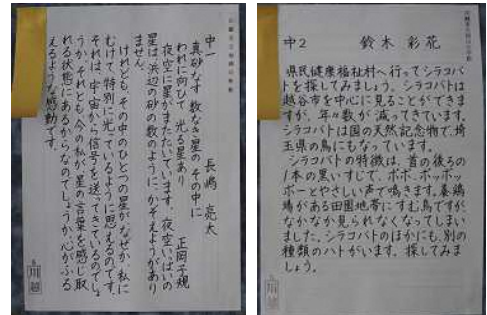 中一　長嶋　亮太
真砂なす　数なき星の　その中に
われに向ひて　光る星あり
正岡子規
夜空に星がまたたいています。夜空いっぱいの
星は浜辺の砂の数のように、かぞえようがあり
ません。
けれども、その中のひとつの星がなぜか、私に
むけて特別に光っているように思えるのです。
それは、宇宙から信号を送ってきているのでしょ
うか。それとも今の私が、星の言葉を感じ取
れる状態にあるからなのでしょうか。心がふる
えるような感動です。
中2　鈴木　彩花
県民健康福祉村へ行ってシラコバ
トを探してみましょう。シラコバトは
越谷市を中心に見ることができま
すが、年々数が減ってきています。
シラコバトは国の天然記念物で、埼
玉県の鳥にもなっています。
シラコバトの特徴は、首の後ろの
1本の黒いすじで、ポポ、ポッポッ
ポーとやさしい声で鳴きます。養鶏
場がある田園地帯にすむ鳥ですが
なかなか見られなくなってしまい
ました。シラコバトのほかにも、別の
種類のハトがいます。探してみま
しょう。